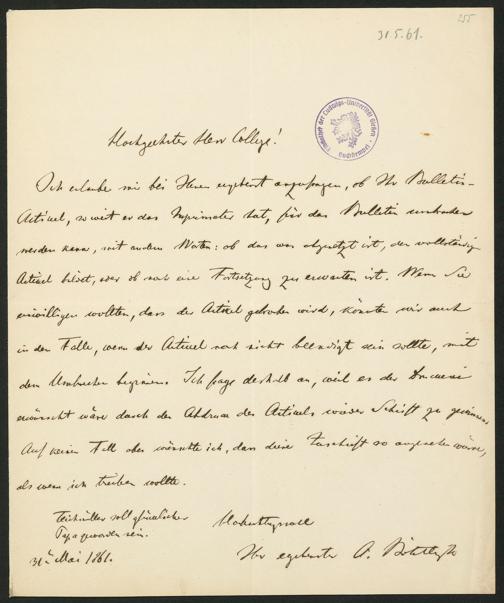 255
31.5.61.
Bibliothek der Ludwigs-Universität Gießen
Hochgeehrter Herr College!
Ich erlaube mir bei Ihnen ergebenst anzufragen, ob Ihr Bulletin-
Artikel, so weit er das Imprimatur hat, für das Bulletin umbrochen
werden kann, mit andern Worten: ob das was abgesetzt ist, den vollständigen
Artikel bildet, oder ob noch eine Fortsetzung zu erwarten ist. Wenn Sie
einwilligen wollten, dass der Artikel gebrochen wird, könnten wir auch
in dem Falle, wenn der Artikel noch nicht beendigt sein sollte, mit
dem Umbrechen beginnen. Ich frage deshalb an, weil es der Druckerei
erwünscht wäre durch den Abdruck des Artikels wieder Schrift zu gewinnen.
Auf keinen Fall aber wünschte ich, dass diese Zuschrift so angesehen würde,
als wenn ich treiben wollte.
soll glücklicher
Papa geworden sein.
Hochachtungsvoll
31n Mai 1861.
Ihr ergebenster O. Böhtlingk